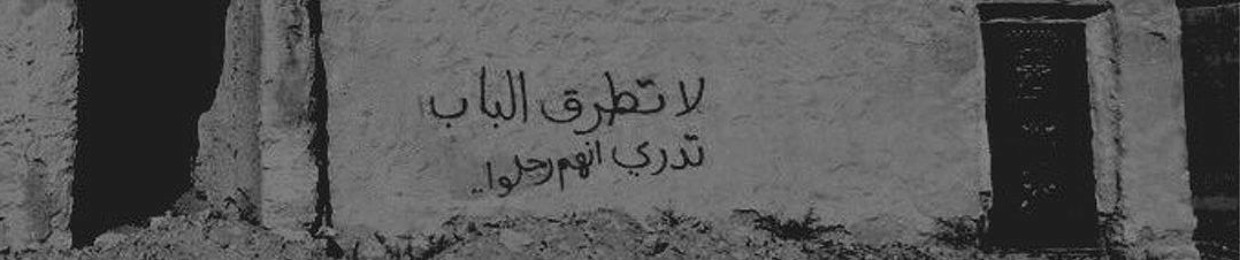 لا تطرق الباب
تدري انهم رحلوا..